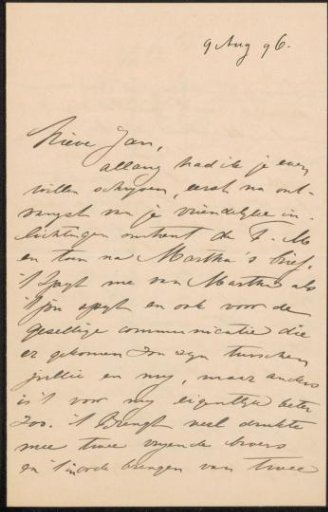 9 Aug 96.
Lieve Jan,
allang had ik je even
willen schrijven, eerst na ont-
vangst van je vriendelijke in-
lichtingen omtrent de F. M
en toen na Martha's brief.
't spijt me van Martha als
't jou spijt en ook voor de
gezellige communicatie die
er gekomen zou zijn tusschen
jullie en mij, maar anders
is 't voor mij eigentlijk beter
zoo. 't Brengt veel drukte
mee twee vrijende broers
en 't in orde brengen van twee